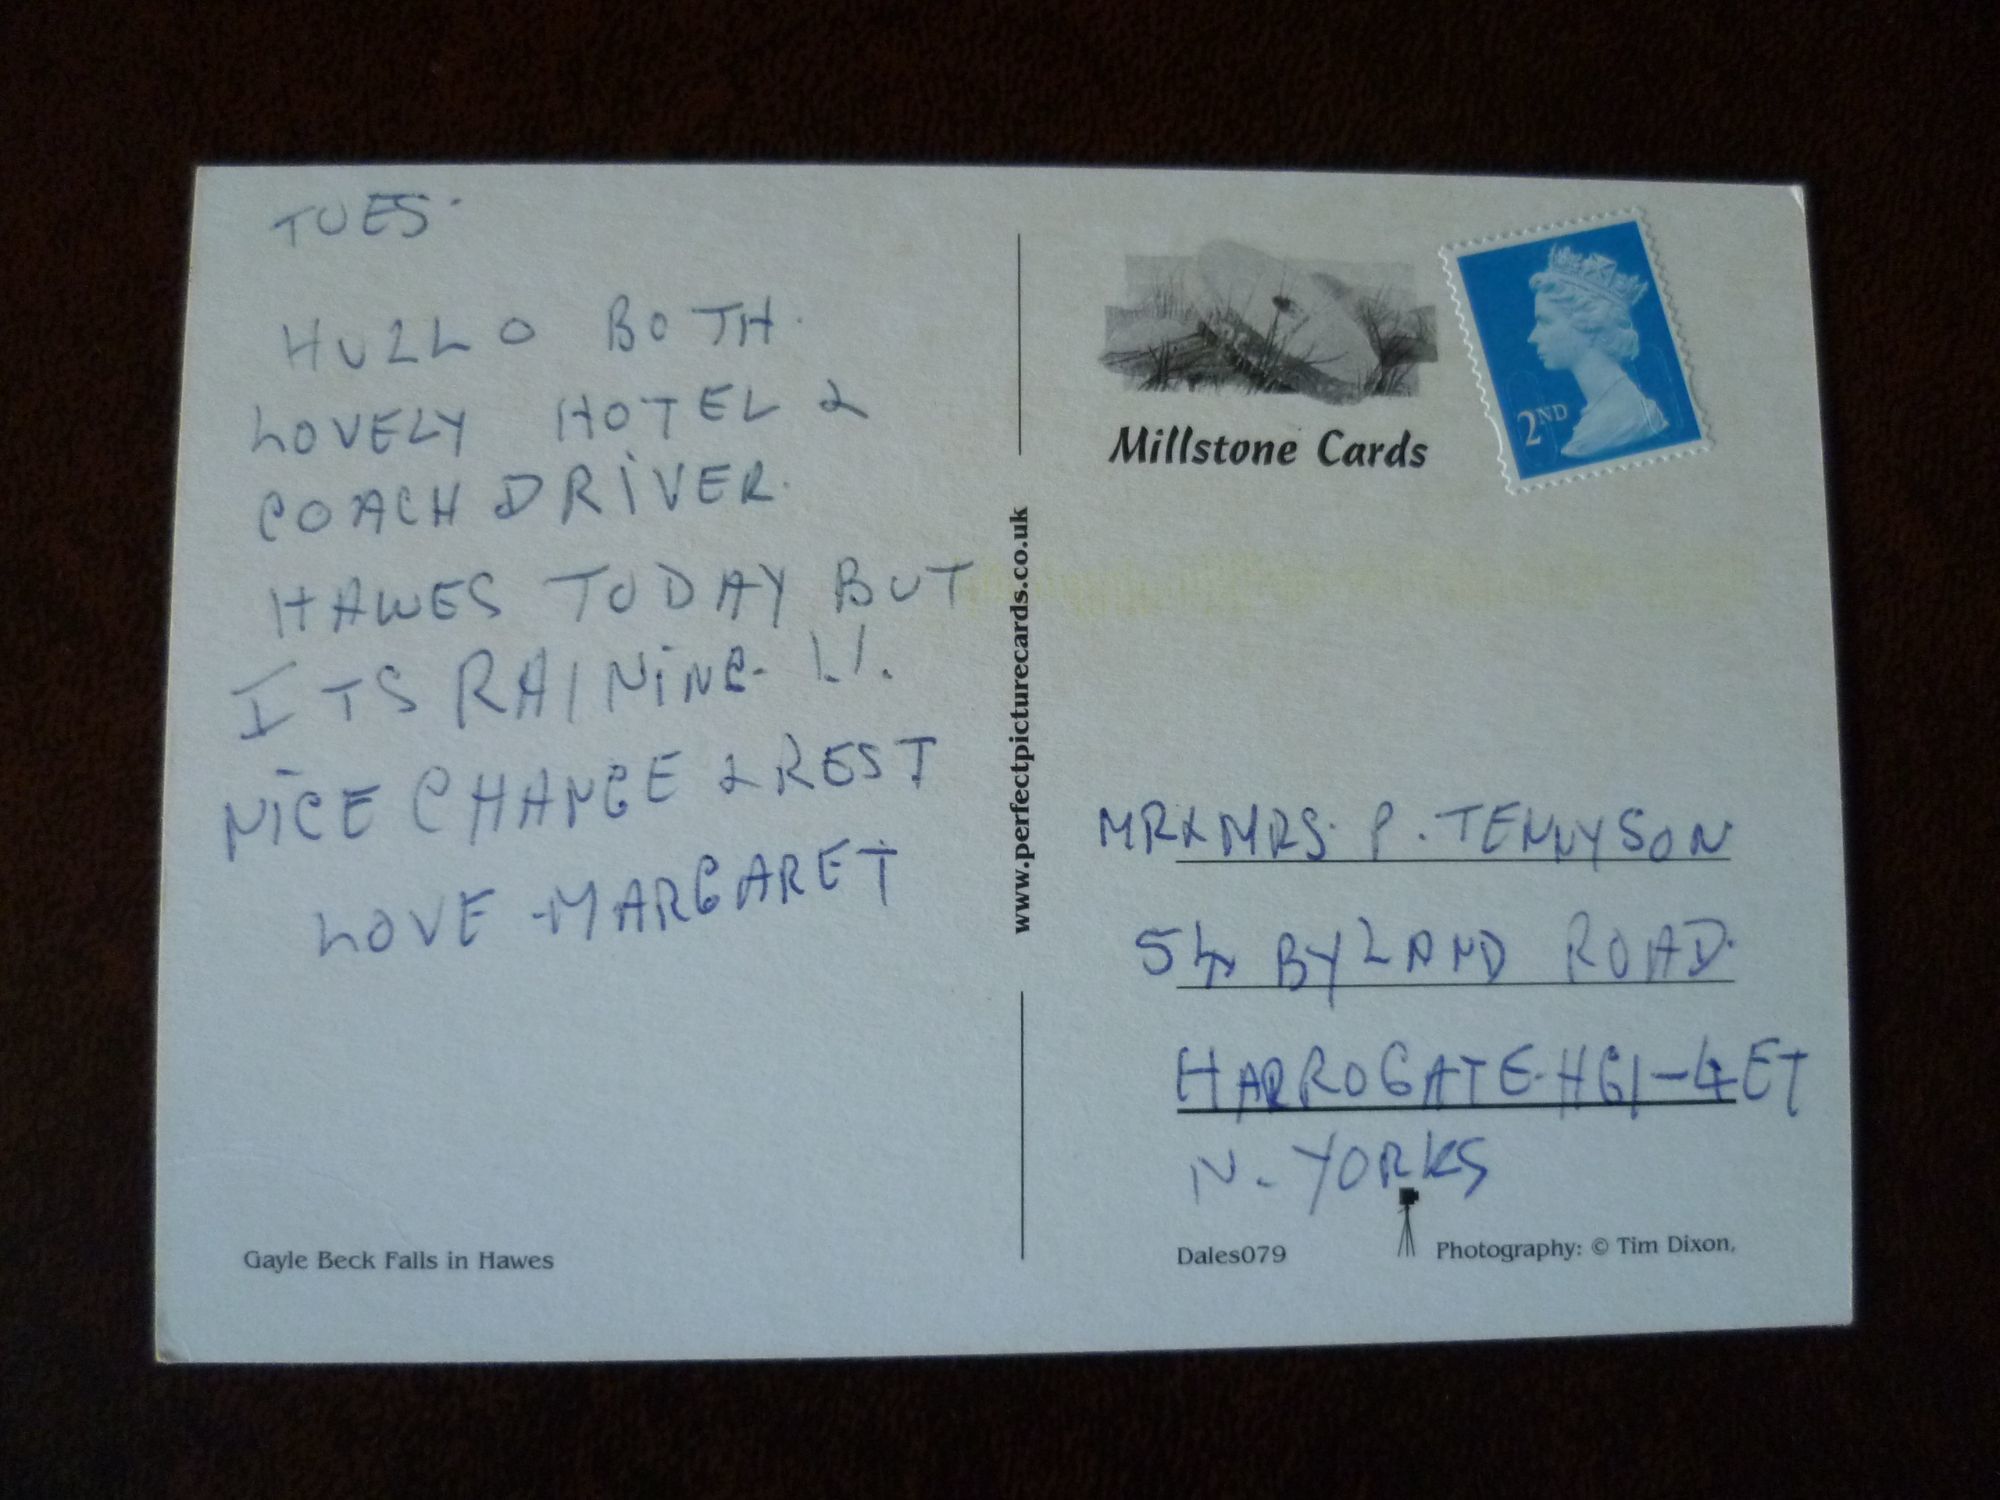 TUES.
HULLO BOTH.
LOVELY HOTEL &
COACH DRIVER.
HAWES TODAY BUT
ITS RAINING !.!.
NICE CHANGE & REST
LOVE MARGARET
Gayle Beck Falls in Hawes
www.perfectpicturecards.co.uk
Millstone Cards
2ND
MR & MRS. P. TENNYSON
54 BYLAND ROAD.
HARROGATE. HG1-4ET
N. YORKS
Dales079
Photography: © Tim Dixon,